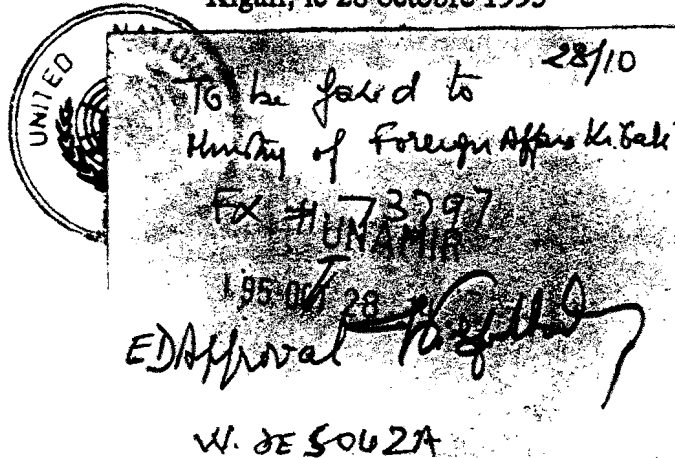 Kigali, le 28 octobre 1995
UNITED NATIONS
28/10
To be faxed to
Ministry of Foreign Affairs Kigali
Fx # 73797
UNAMIR
1995 OCT 28
ED Approval
W. DE SOUZA